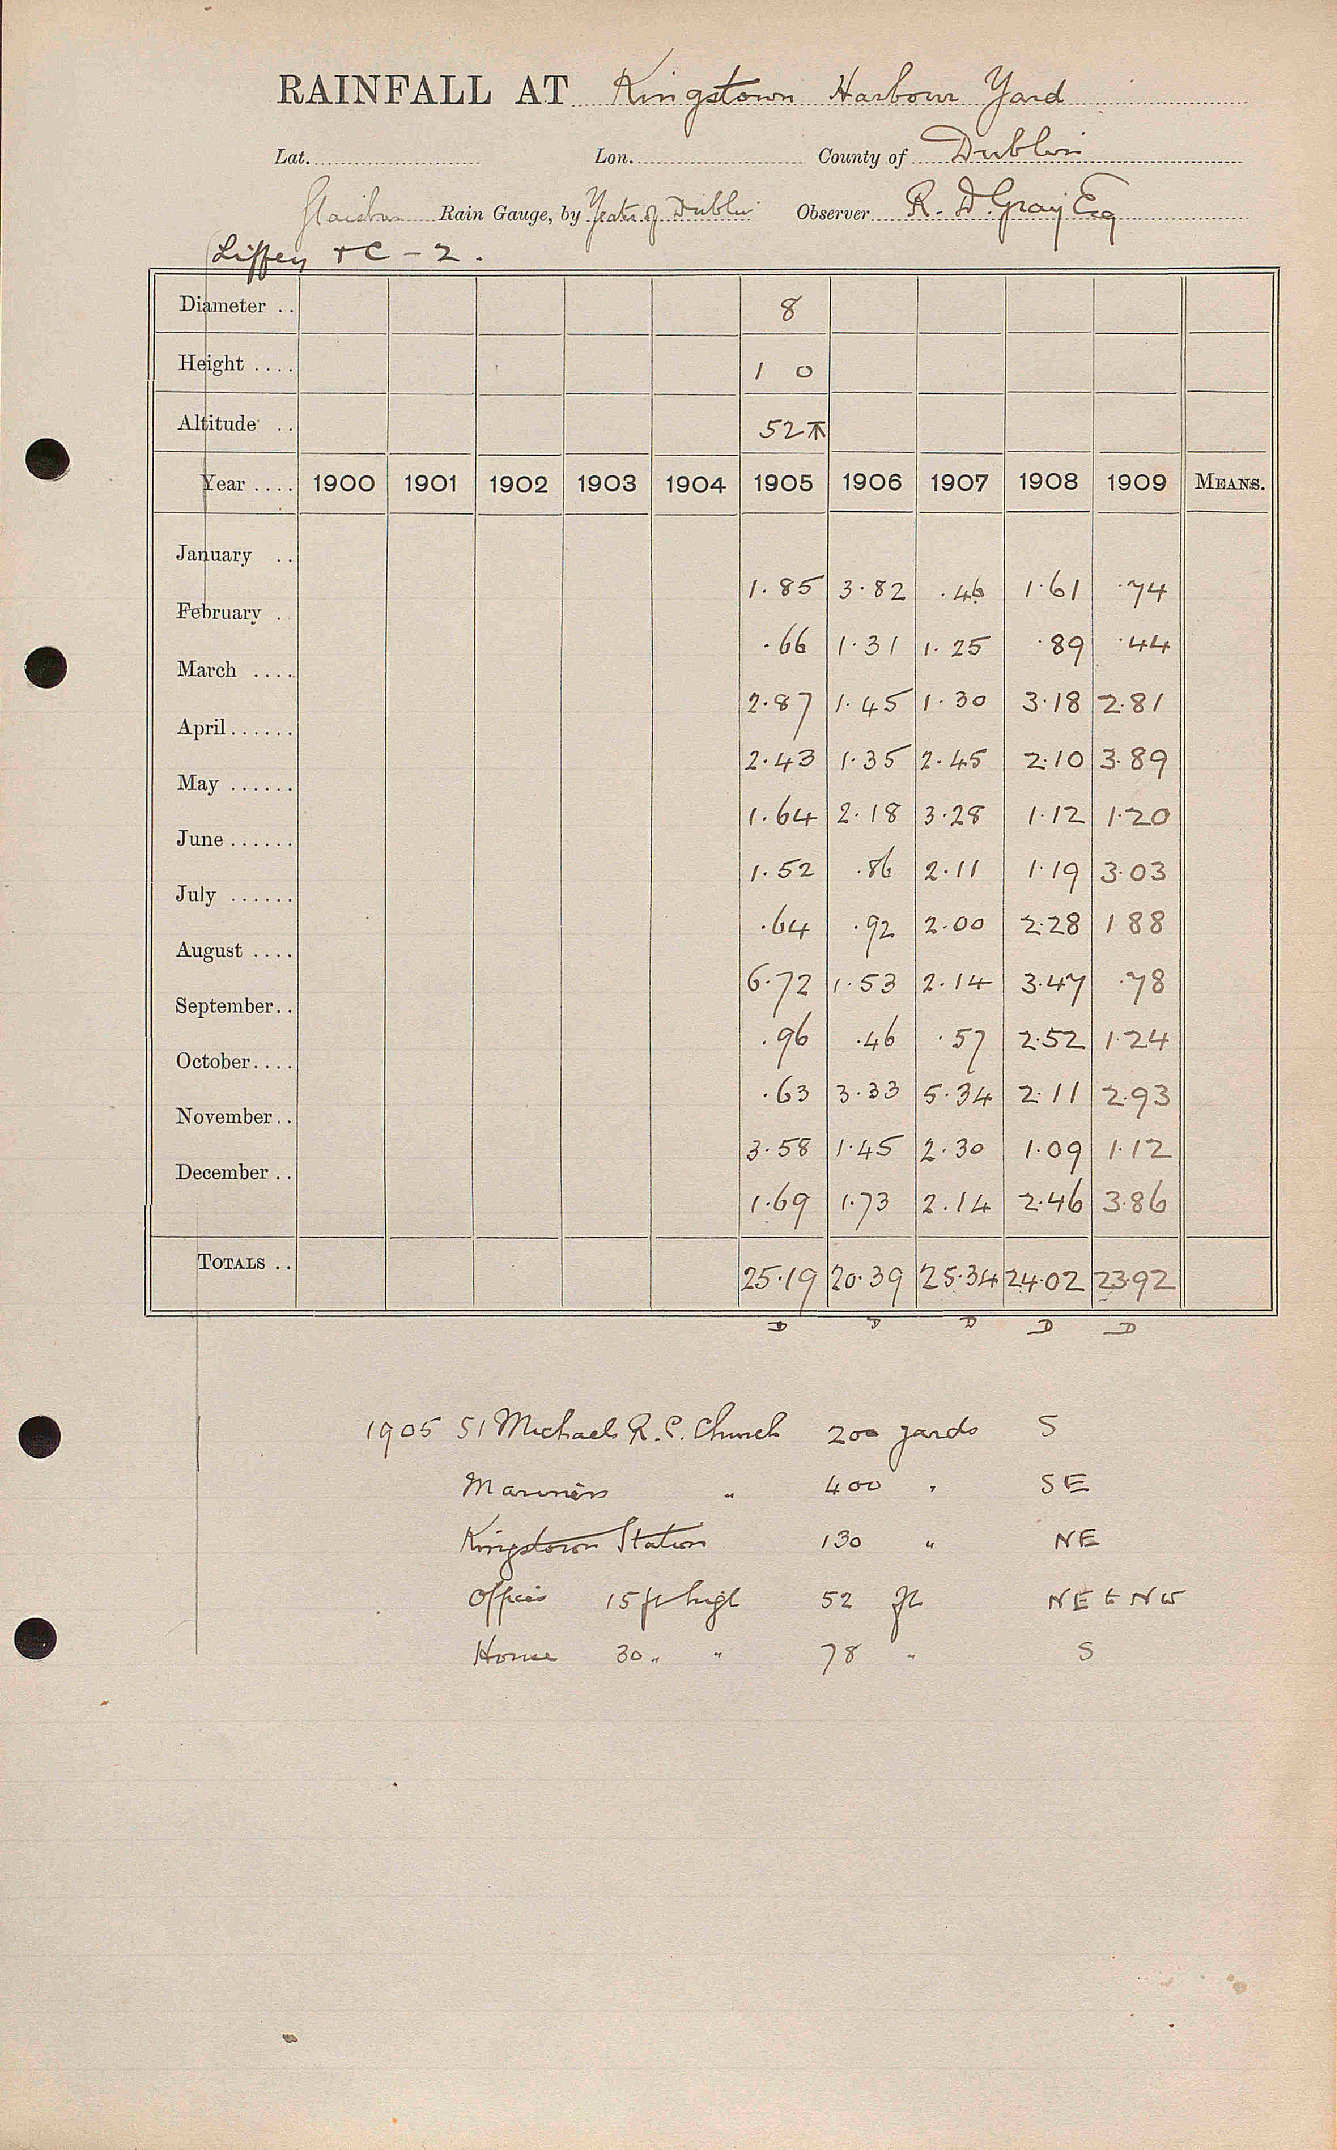 RAINFALL AT Kingstown Harbour Yard
Lat. Lon. County of Dublin
Glaisher Rain Gauge, by Yeates of Dublin Observer R. D. Gray Esq
Liffey + C - 2.
Diameter .. 8
Height .... 1 0
Altitude .. 52
Year .... 1900 1901 1902 1903 1904 1905 1906 1907 1908 1909 MEANS.
January .. 1.85 3.82 .46 1.61 .74
February . .66 1.31 1.25 .89 .44
March .... 2.87 1.45 1.30 3.18 2.81
April...... 2.43 1.35 2.45 2.10 3.89
May ...... 1.64 2.18 3.28 1.12 1.20
June...... 1.52 .86 2.11 1.19 3.03
July ...... .64 .92 2.00 2.28 1 88
August .... 6.72 1.53 2.14 3.47 .78
September.. .96 .46 .57 2.52 1.24
October.... .63 3.33 5.34 2.11 2.93
November.. 3.58 1.45 2.30 1.09 1.12
December .. 1.69 1.73 2.14 2.46 3.86
TOTALS .. 25.19 20.39 25.34 24.02 23.92
D D D D D
1905 St Michaels R.C. Church 200 yards S
Mariners " 400 " SE
Kingstown Station 130 " NE
Offices 15 ft high 52 ft NE & NW
House 30 " " 78 " S